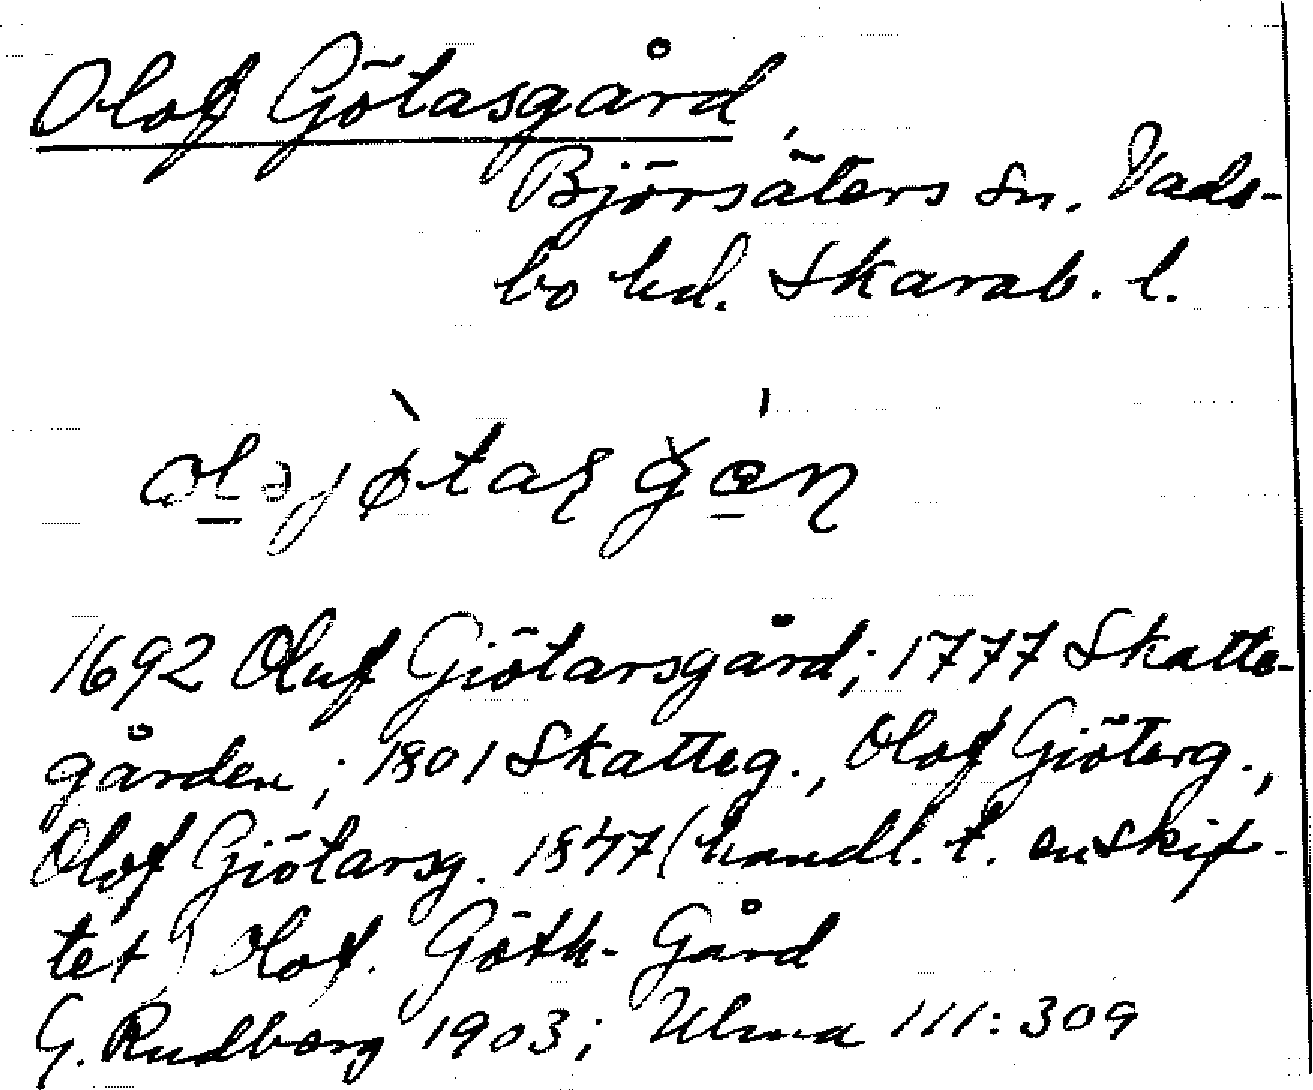 Olof Götasgård,
Björsäters sn. Vads-
bo hd. Skarab. l.
1692 Oluf Giötarsgård; 1777 Skatte-
gården; 1801 Skatteg., Olof Giöterg.,
Olof Giötarsg. 1847 (handl. t. enskif-
tet) Olof. Göth-Gård
G. Rudberg 1903; Ulma 111:309